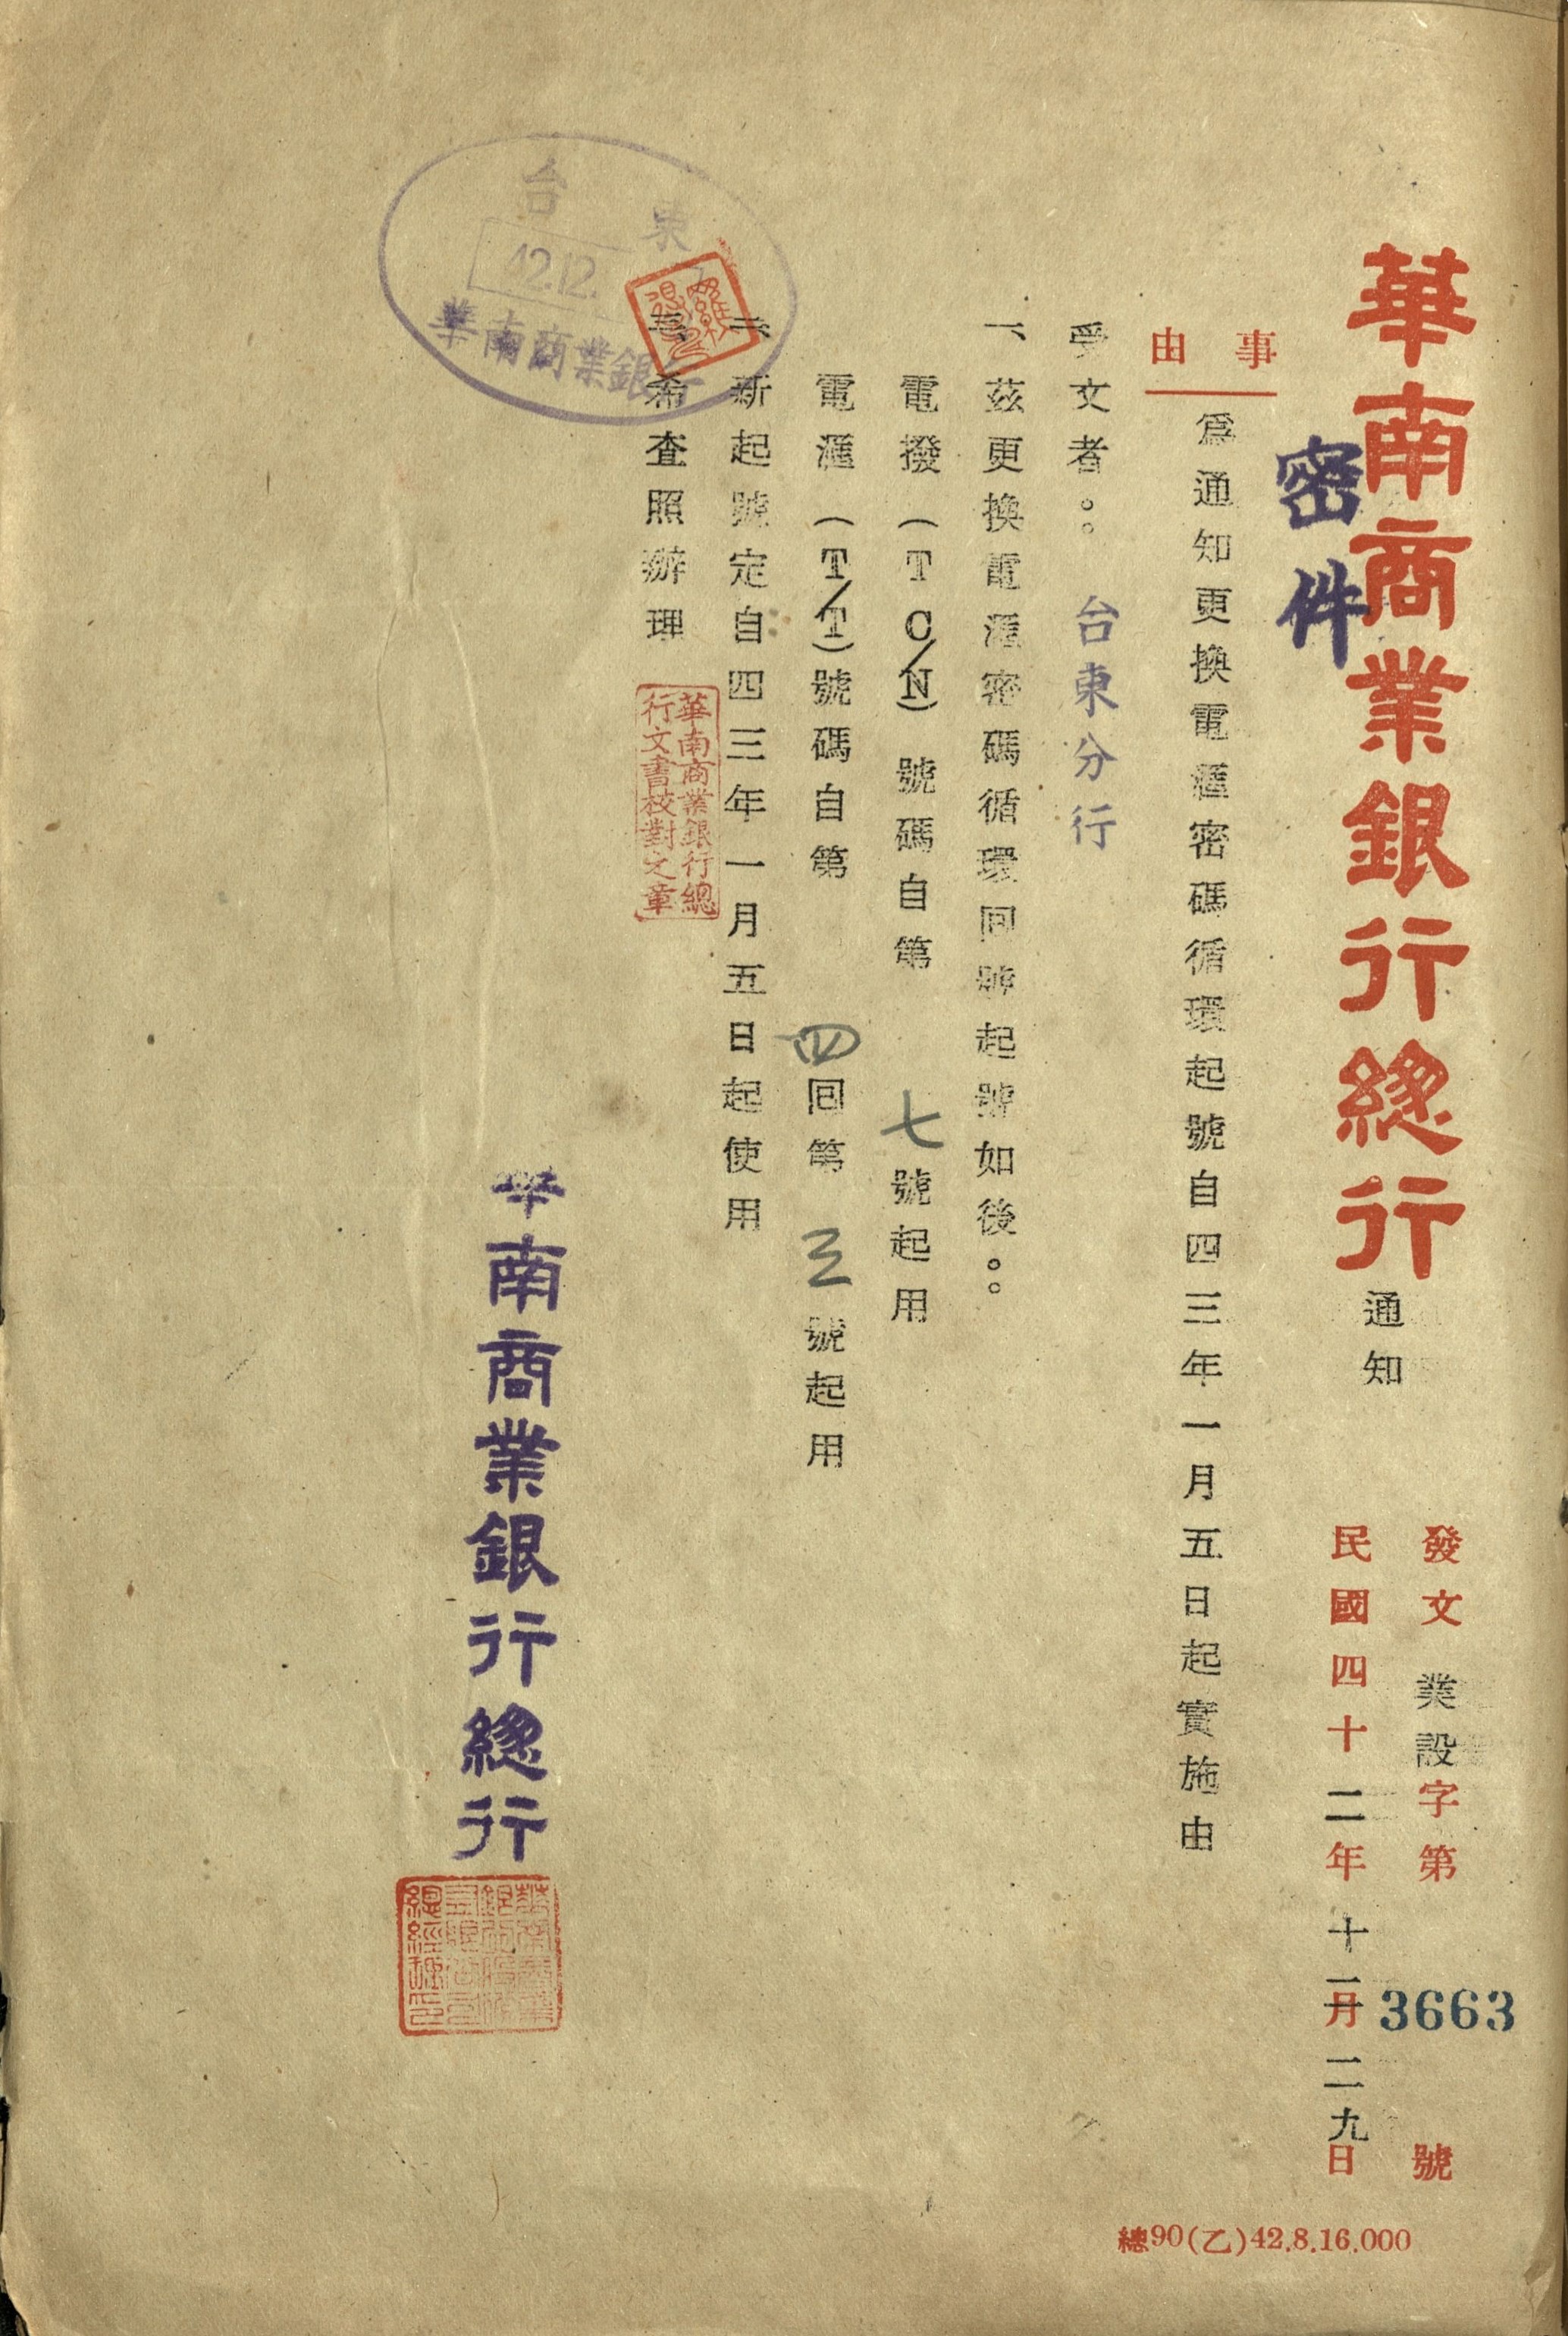 華南商業銀行總行 通知
發文 業設字第 3663 號
民國四十二年十二月二九日
密件
事由
爲通知更換電滙密碼循環起號自四三年一月五日起實施由
受文者。。台東分行
一、茲更換電滙密碼循環回號起號如後。。
電撥(TC/N)號碼自第 七 號起用
電滙(T/T)號碼自第 四 回第 三 號起用
二 新起號定自四三年一月五日起使用
三 希查照辦理
華南商業銀行總
行文書校對之章
台東
42.12.
華南商業銀行
華南商業銀行總行
總90(乙)42.8.16.000